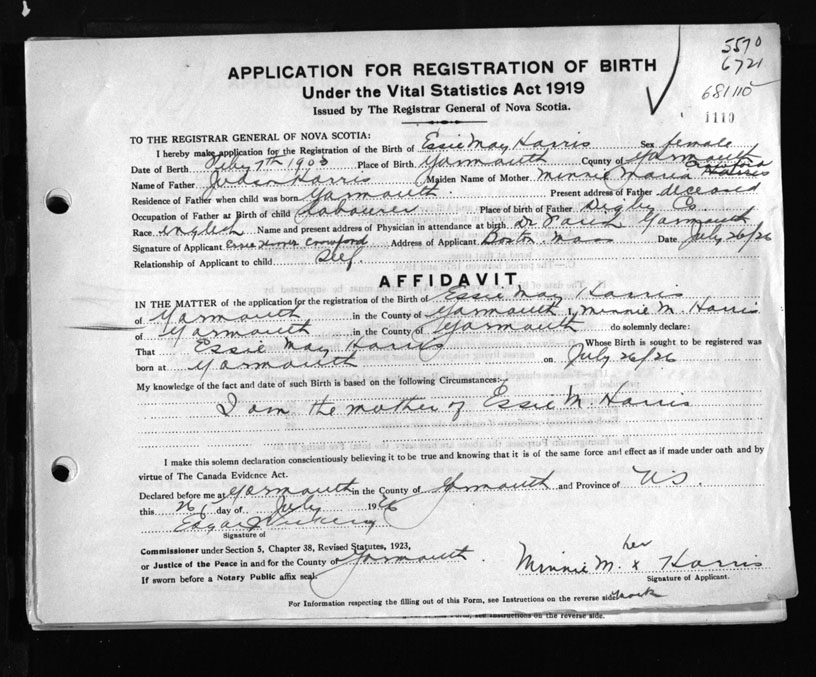 5570
6721
681110
1110
APPLICATION FOR REGISTRATION OF BIRTH
Under the Vital Statistics Act 1919
Issued by The Registrar General of Nova Scotia.
TO THE REGISTRAR GENERAL OF NOVA SCOTIA:
I hereby make application for the Registration of the Birth of Essie May Harris Sex female
Date of Birth Feby 7th 1903 Place of Birth Yarmouth County of Yarmouth
Name of Father Harris Maiden Name of Mother Minnie Maria
Residence of Father when child was born Yarmouth. Present address of Father deceased
Occupation of Father at Birth of child Labourer Place of birth of Father Digby Co.
Race english Name and present address of Physician in attendance at birth Dr Yarmouth
Signature of Applicant Crawford Address of Applicant Boston. Mass Date July 26/26
Relationship of Applicant to child Self
AFFIDAVIT
IN THE MATTER of the application for the registration of the Birth of Essie May Harris
of Yarmouth in the County of Yarmouth I, Minnie M. Harris
of Yarmouth in the County of Yarmouth do solemnly declare:
That Essie May Harris Whose Birth is sought to be registered was
born at Yarmouth on July 26/26
My knowledge of the fact and date of such Birth is based on the following Circumstances:-
I am the mother of Essie M. Harris
I make this solemn declaration conscientiously believing it to be true and knowing that it is of the same force and effect as if made under oath and by
virtue of The Canada Evidence Act.
Declared before me at Yarmouth in the County of Yarmouth and Province of N.S.
this 26 day of July 1926
Edgar
Signature of
Commissioner under Section 5, Chapter 38, Revised Statutes, 1923,
or Justice of the Peace in and for the County of Yarmouth.
If sworn before a Notary Public affix seal.
her
Minnie M. x Harris
mark
Signature of Applicant.
For Information respecting the filling out of this Form, see Instructions on the reverse side.
see Instructions on the reverse side.